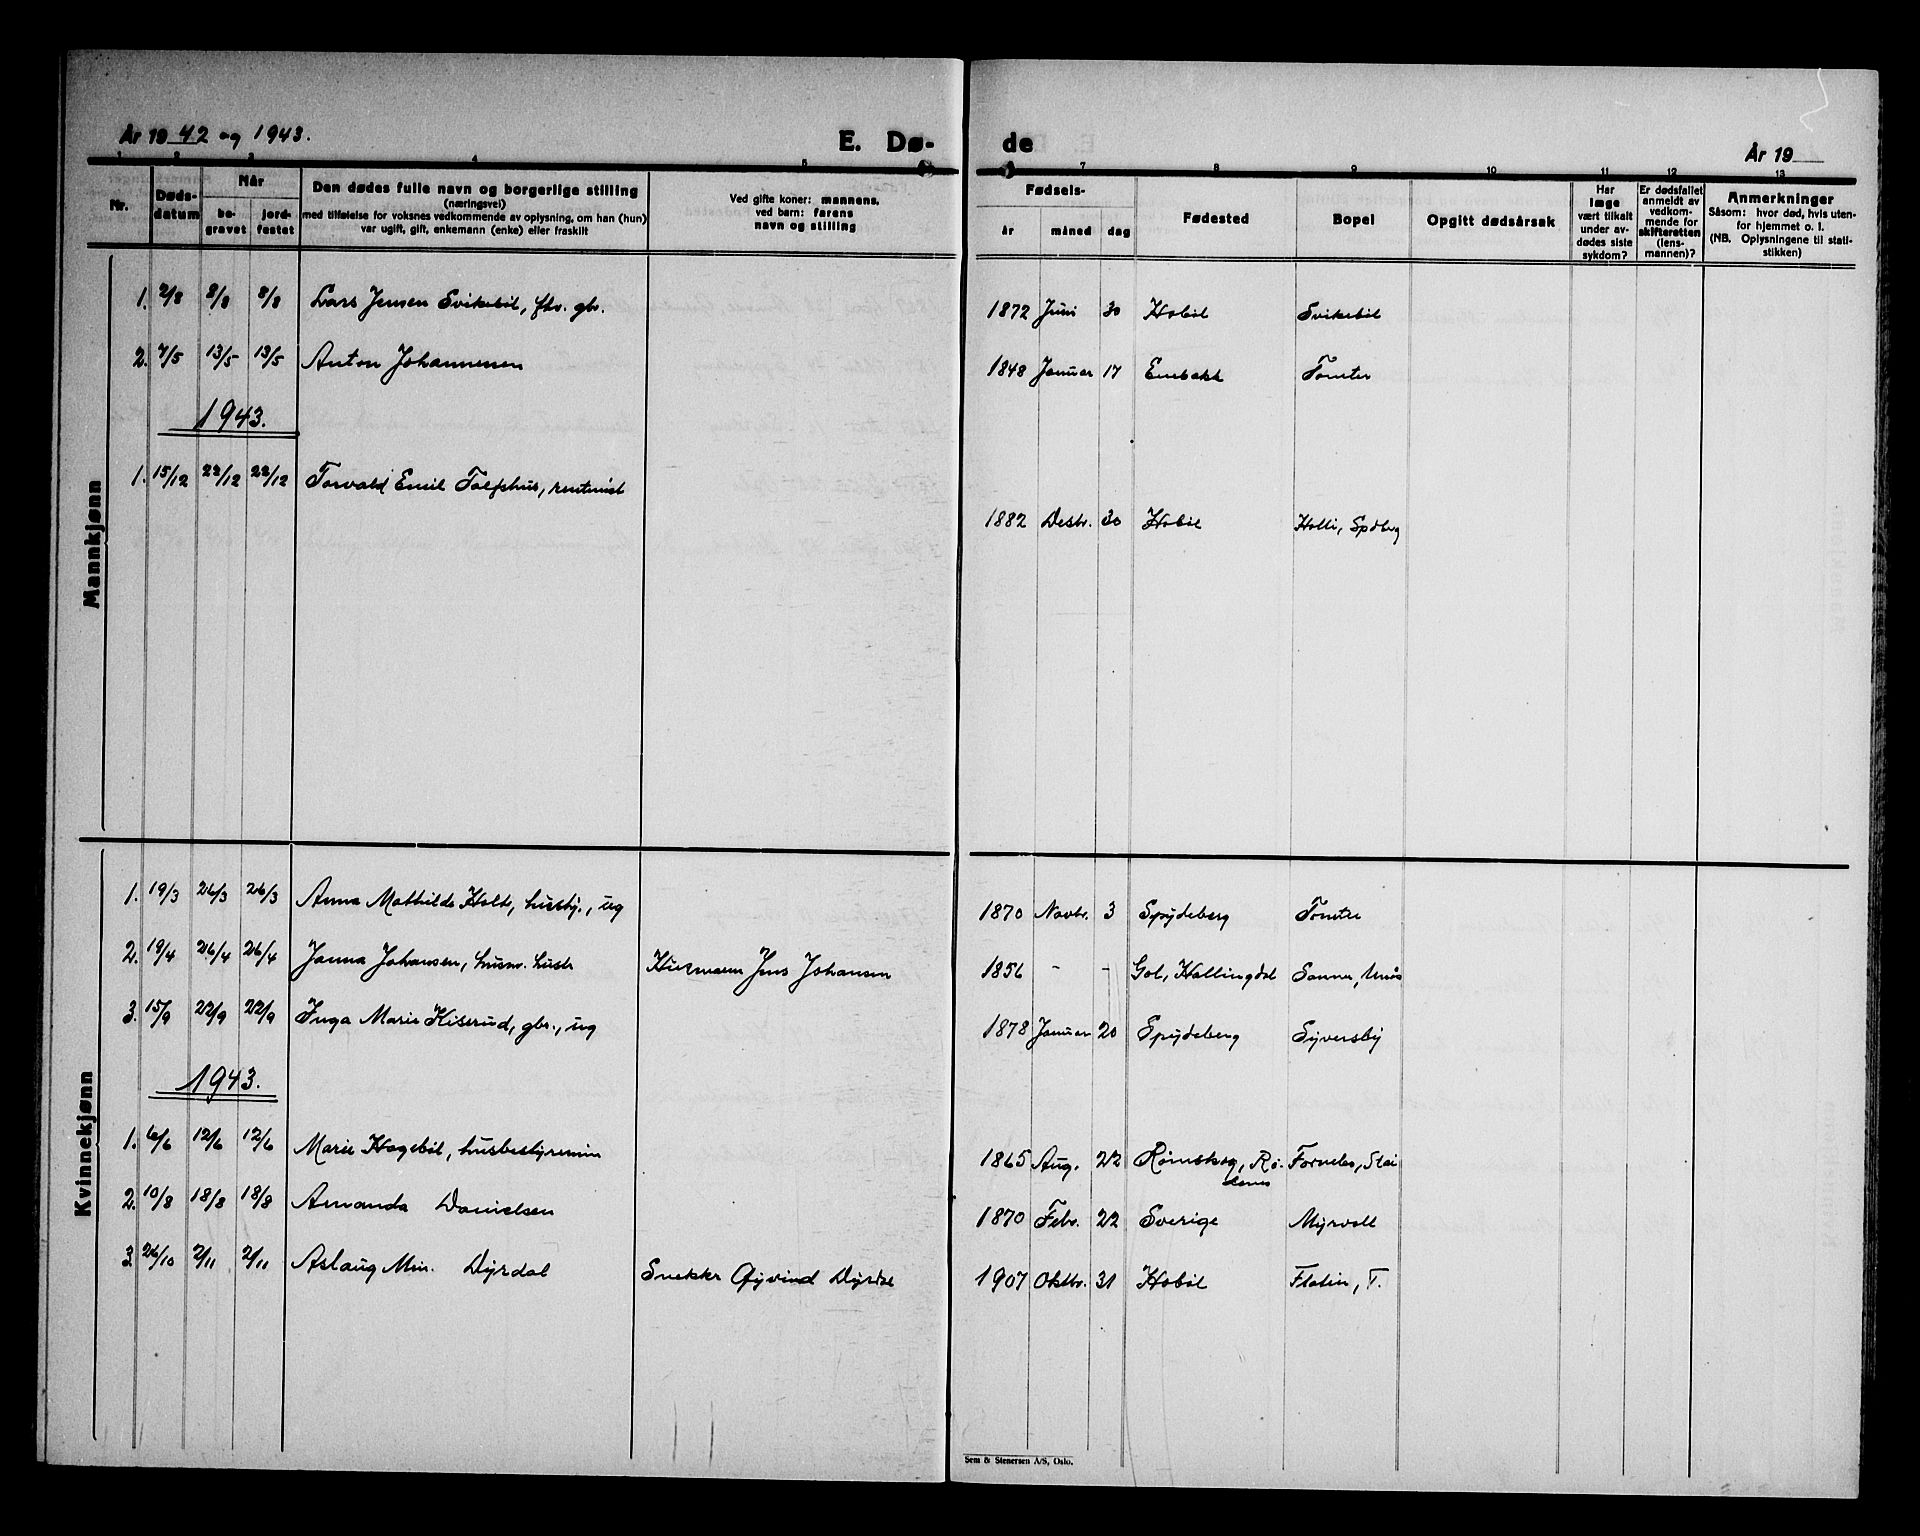 År 1942 og 1943.
E. Dø-
de
År 19
1 2 3 4 5 7 8 9 10 11 12 13
Nr.
Døds-
datum
Når
be-
gravet
jord-
festet
Den dødes fulle navn og borgerlige stilling
(næringsvei)
med tilføielse for voksnes vedkommende av oplysning, om han (hun)
var ugift, gift, enkemann (enke) eller fraskilt
Ved gifte koner: mannens,
ved barn: farens
navn og stilling
Fødsels-
år måned dag
Fødested
Bopel
Opgitt dødsårsak
Har
læge
vært tilkalt
under av-
dødes siste
sykdom?
Er dødsfallet
anmeldt av
vedkom-
mende for
skifteretten
(lens-
mannen)?
Anmerkninger
Såsom: hvor død, hvis uten-
for hjemmet o. l.
(NB. Oplysningene til stati-
stikken)
Mannkjønn
1. 2/8 8/8 8/8 Lars Jensen Svikebøl, fhv. gbr. 1872 Juni 30 Hobøl Svikebøl
2. 7/5 13/5 13/5 Anton Johannesen 1848 Januar 17 Enebakk Tomter
1943.
1. 15/12 22/12 22/12 Torvald Emil Tolfshus, rentenist 1882 Desbr. 30 Hobøl Holli, Spdberg
Kvinnekjønn
1. 19/3 26/3 26/3 Anna Mathilde Holt, husby., ug 1870 Novbr. 3 Spydeberg Tomter
2. 19/4 26/4 26/4 Janna Johansen, husm. hustr Husmann Jens Johansen 1856 - - Gol, Hallingdal Sanner,
3. 15/9 22/9 22/9 Inga Marie Kiserud, gbr., ug 1878 Januar 20 Spydeberg Syversby
1943.
1. 6/6 12/6 12/6 Marie Hagebøl, husbestyrerinn 1865 Aug. 22 Rømskog, Rø- Fornebo,
denes
2. 10/8 18/8 18/8 Amanda Danielsen 1870 Febr. 22 Sverige Myrvoll
3 26/10 2/11 2/11 Aslaug Mm. Dyrdal Snekker Øyvind Dyrdal 1907 Oktbr. 31 Hobøl Flaten, T.
Sem & Stenersen A/S, Oslo.